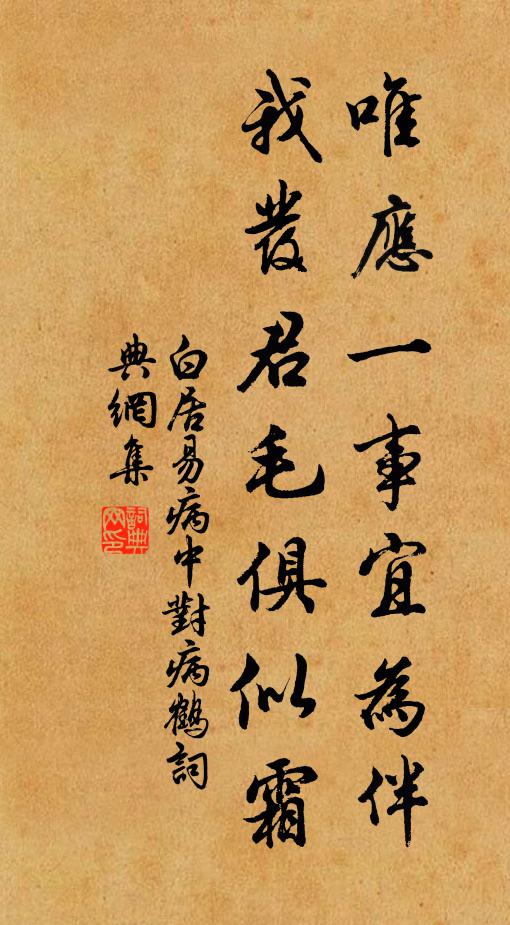 唯應一事宜為伴
我發君毛俱似霜
白居易病中對病鶴詞
典網集
詞典網印